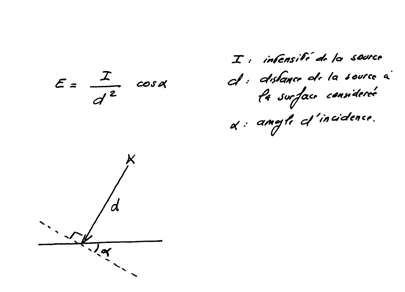 E = I / d² cosα
I : intensité de la source
d : distance de la source à
la surface considerée
α : angle d'incidence.
d
α